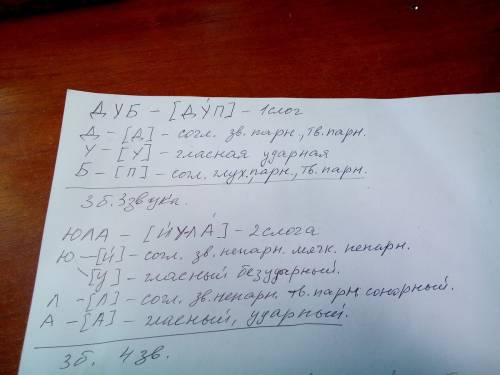 ДУБ – [ДУ́П] – 1 слог
Д – [Д] – согл. зв. парн., тв. парн.
У – [У] – гласная ударная
Б – [П] – согл. глух., парн., тв. парн.
3 б. 3 звука.
ЮЛА – [ЙУЛА́] – 2 слога
Ю – [Й] – согл. зв. непарн. мягк. непарн.
\[У] – гласный безударный.
Л – [Л] – согл. зв. непарн. тв. парн. сонорный.
А – [А] – гласный, ударный.
3 б. 4 зв.